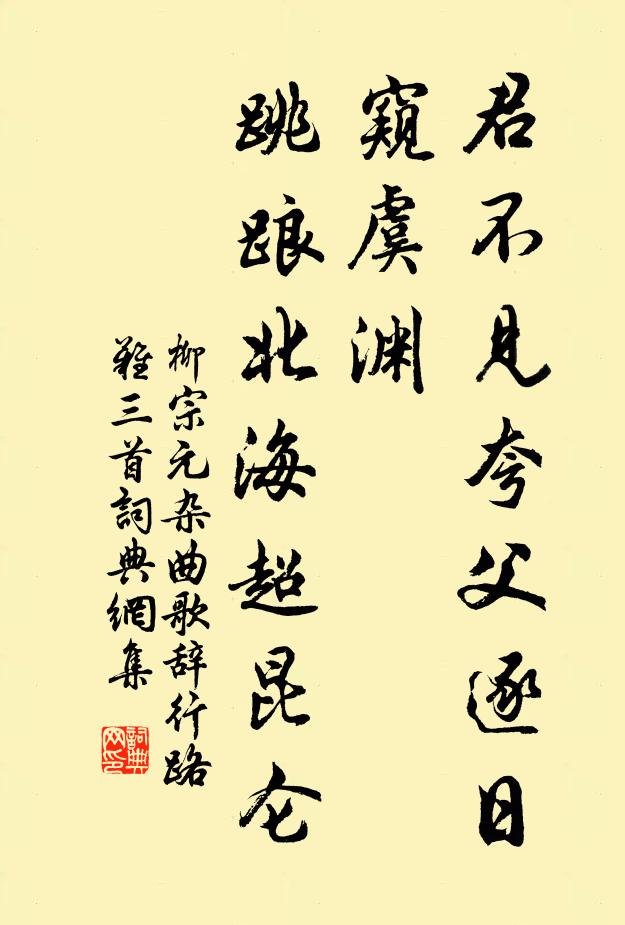 君不见夸父逐日
窥虞渊
跳踉北海超昆仑
柳宗元杂曲歌辞行路
难三首詞典網集
詞典
网印